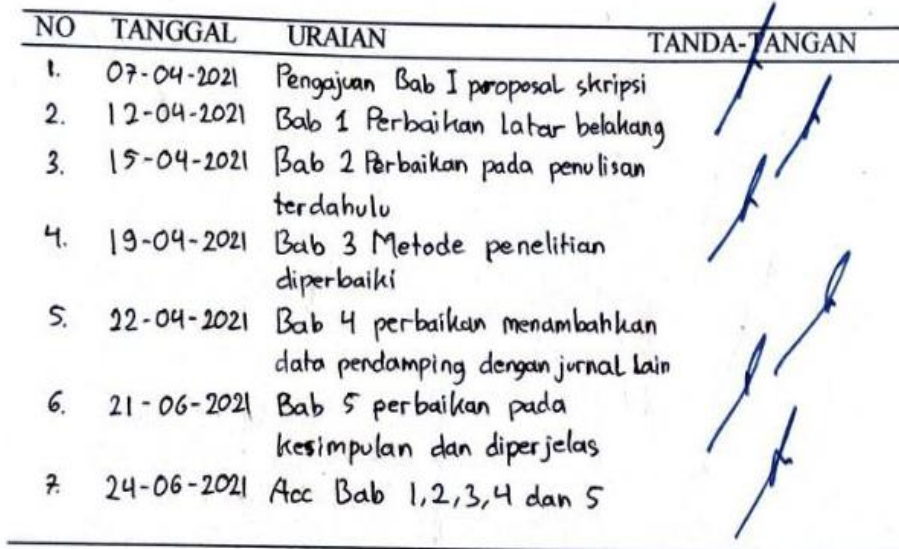 NO TANGGAL URAIAN TANDA-TANGAN
1. 07-04-2021 Pengajuan Bab I proposal skripsi
2. 12-04-2021 Bab 1 Perbaikan latar belakang
3. 15-04-2021 Bab 2 Perbaikan pada penulisan
terdahulu
4. 19-04-2021 Bab 3 Metode penelitian
diperbaiki
5. 22-04-2021 Bab 4 perbaikan menambahkan
data pendamping dengan jurnal lain
6. 21-06-2021 Bab 5 perbaikan pada
kesimpulan dan diperjelas
7. 24-06-2021 Acc Bab 1,2,3,4 dan 5